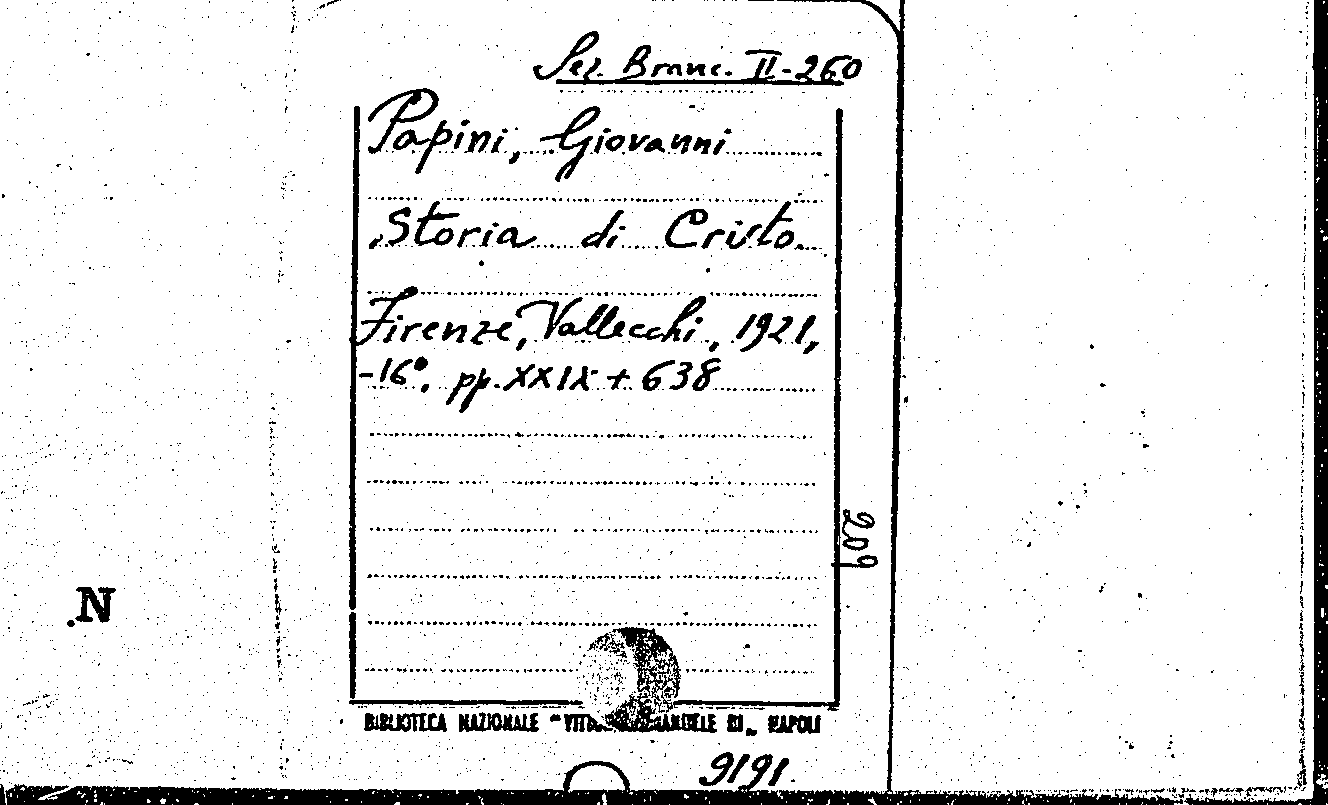 Sez. Branc. II-260
Papini, Giovanni
Storia di Cristo.
Firenze, Vallecchi, 1921,
-16°. pp. XXIX + 638
209
N
BIBLIOTECA NAZIONALE "VITT EMANUELE III„ NAPOLI
9191.